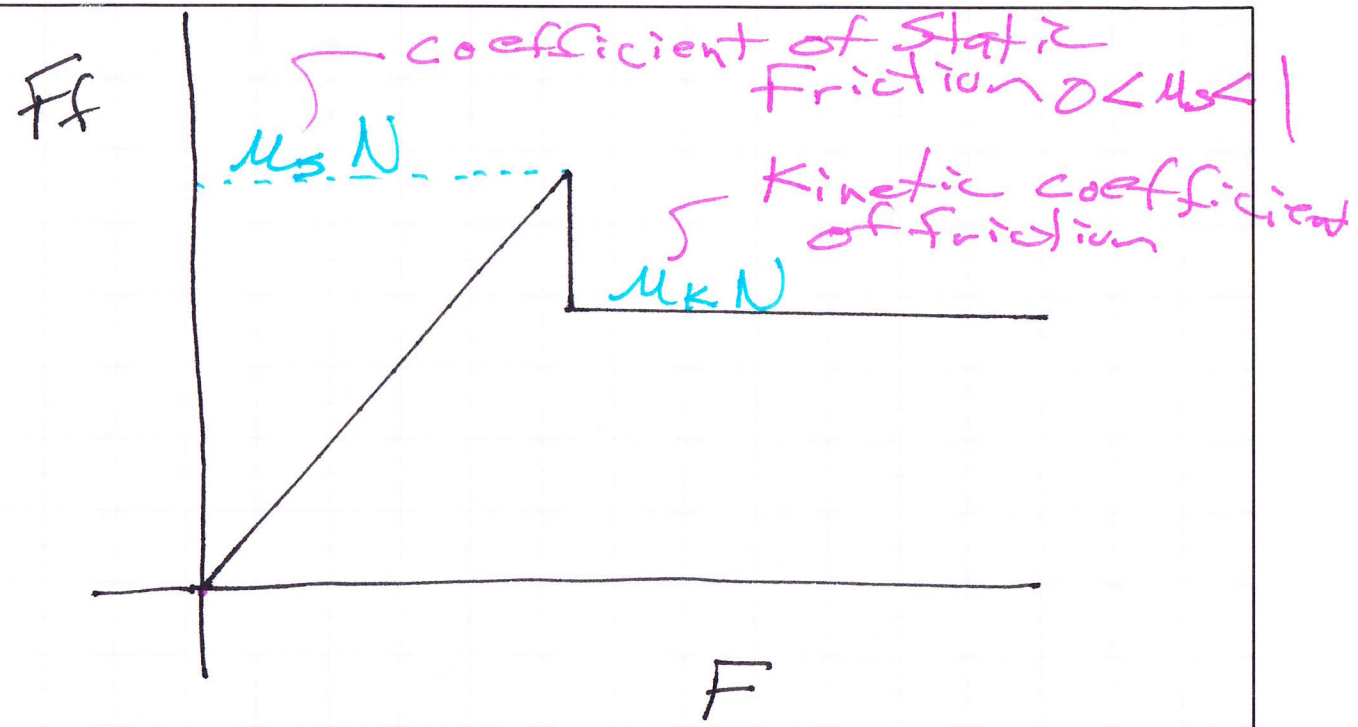 coefficient of Static
Friction 0<μs<1
Ff
μsN
Kinetic coefficient
of friction
μKN
F